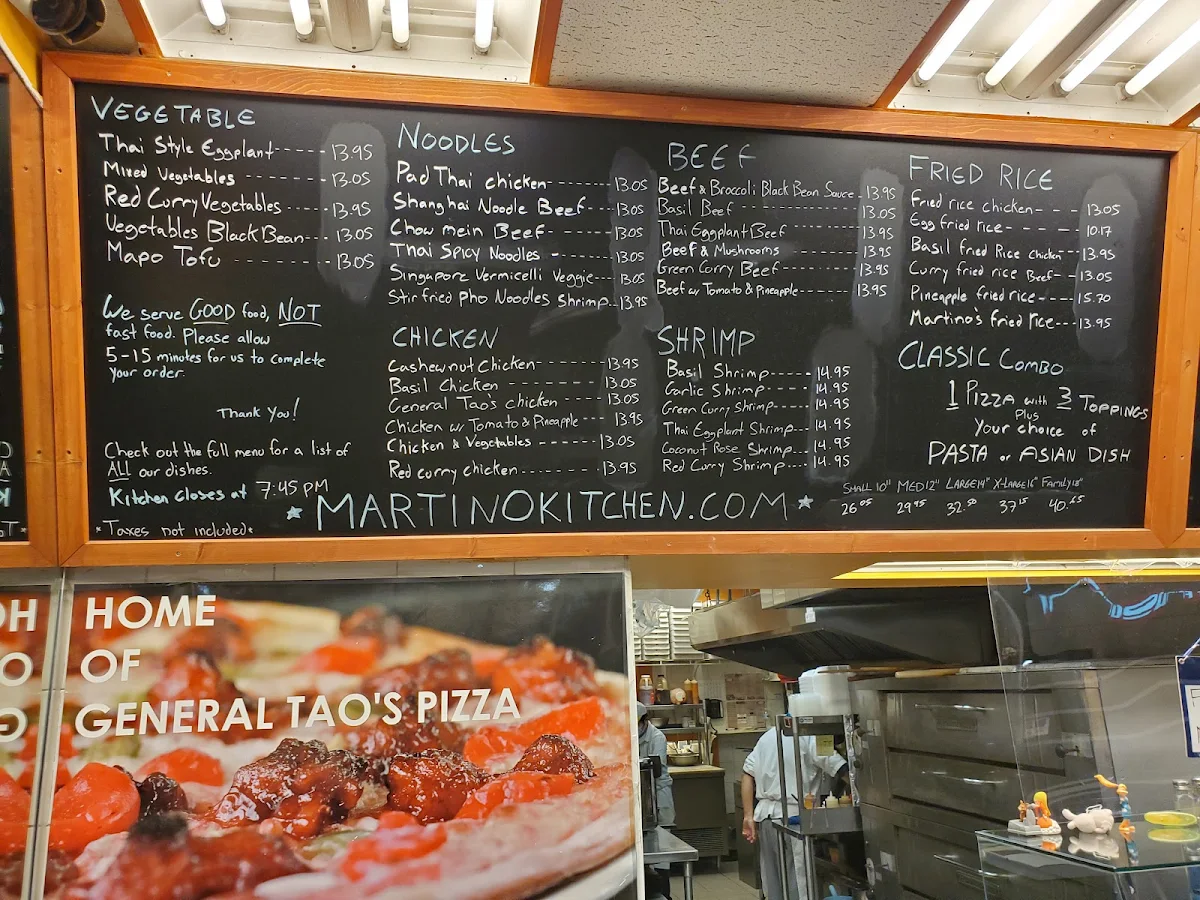 VEGETABLE
Thai Style Eggplant ----- 13.95
Mixed Vegetables ------- 13.05
Red Curry Vegetables ---- 13.95
Vegetables Black Bean --- 13.05
Mapo Tofu ---------- 13.05
We serve GOOD food, NOT
fast food. Please allow
5-15 minutes for us to complete
your order.
Thank You!
Check out the full menu for a list of
ALL our dishes.
Kitchen closes at 7:45 PM
*Taxes not included*
NOODLES
Pad Thai chicken ------- 13.05
Shanghai Noodle Beef --- 13.05
Chow mein Beef ------- 13.05
Thai Spicy Noodles ------ 13.05
Singapore Vermicelli Veggie --- 13.05
Stir fried Pho Noodles Shrimp -- 13.95
CHICKEN
Cashewnut Chicken ------- 13.95
Basil Chicken -------- 13.05
General Tao's chicken ----- 13.05
Chicken w/ Tomato & Pineapple ---- 13.95
Chicken & Vegetables ------ 13.05
Red curry chicken -------- 13.95
BEEF
Beef & Broccoli Black Bean Sauce - 13.95
Basil Beef ---------- 13.05
Thai Eggplant Beef ------ 13.95
Beef & Mushrooms ------ 13.95
Green Curry Beef ------- 13.95
Beef w/ Tomato & Pineapple ----- 13.95
SHRIMP
Basil Shrimp ----- 14.95
Garlic Shrimp ----- 14.95
Green Curry Shrimp ----- 14.95
Thai Eggplant Shrimp --- 14.95
Coconut Rose Shrimp --- 14.95
Red Curry Shrimp ---- 14.95
FRIED RICE
Fried rice chicken --- 13.05
Egg fried rice ------ 10.17
Basil fried Rice Chicken -- 13.95
Curry fried rice Beef --- 13.05
Pineapple fried rice ---- 15.70
Martino's fried rice --- 13.95
CLASSIC COMBO
1 PIZZA with 3 TOPPINGS
Plus
Your choice of
PASTA or ASIAN DISH
SMALL 10" MED 12" LARGE 14" X-LARGE 16" FAMILY 18"
26.05 29.95 32.50 37.15 40.65
*MARTINOKITCHEN.COM*
HOME
OF
GENERAL TAO'S PIZZA